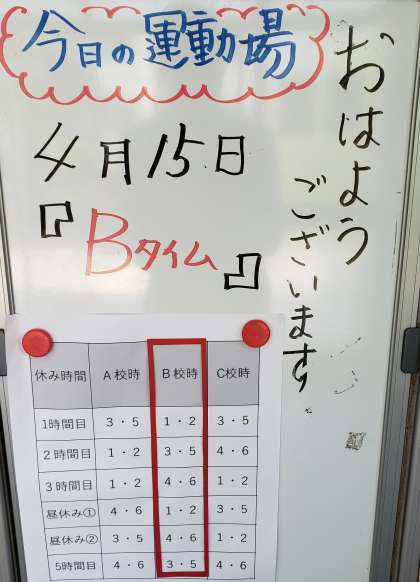 今日の運動場
おはよう
ございます
4月15日
『Bタイム』
休み時間 A校時 B校時 C校時
1時間目 3・5 1・2 3・5
2時間目 1・2 3・5 4・6
3時間目 1・2 4・6 1・2
昼休み① 4・6 1・2 3・5
昼休み② 3・5 4・6 1・2
5時間目 4・6 3・5 4・6